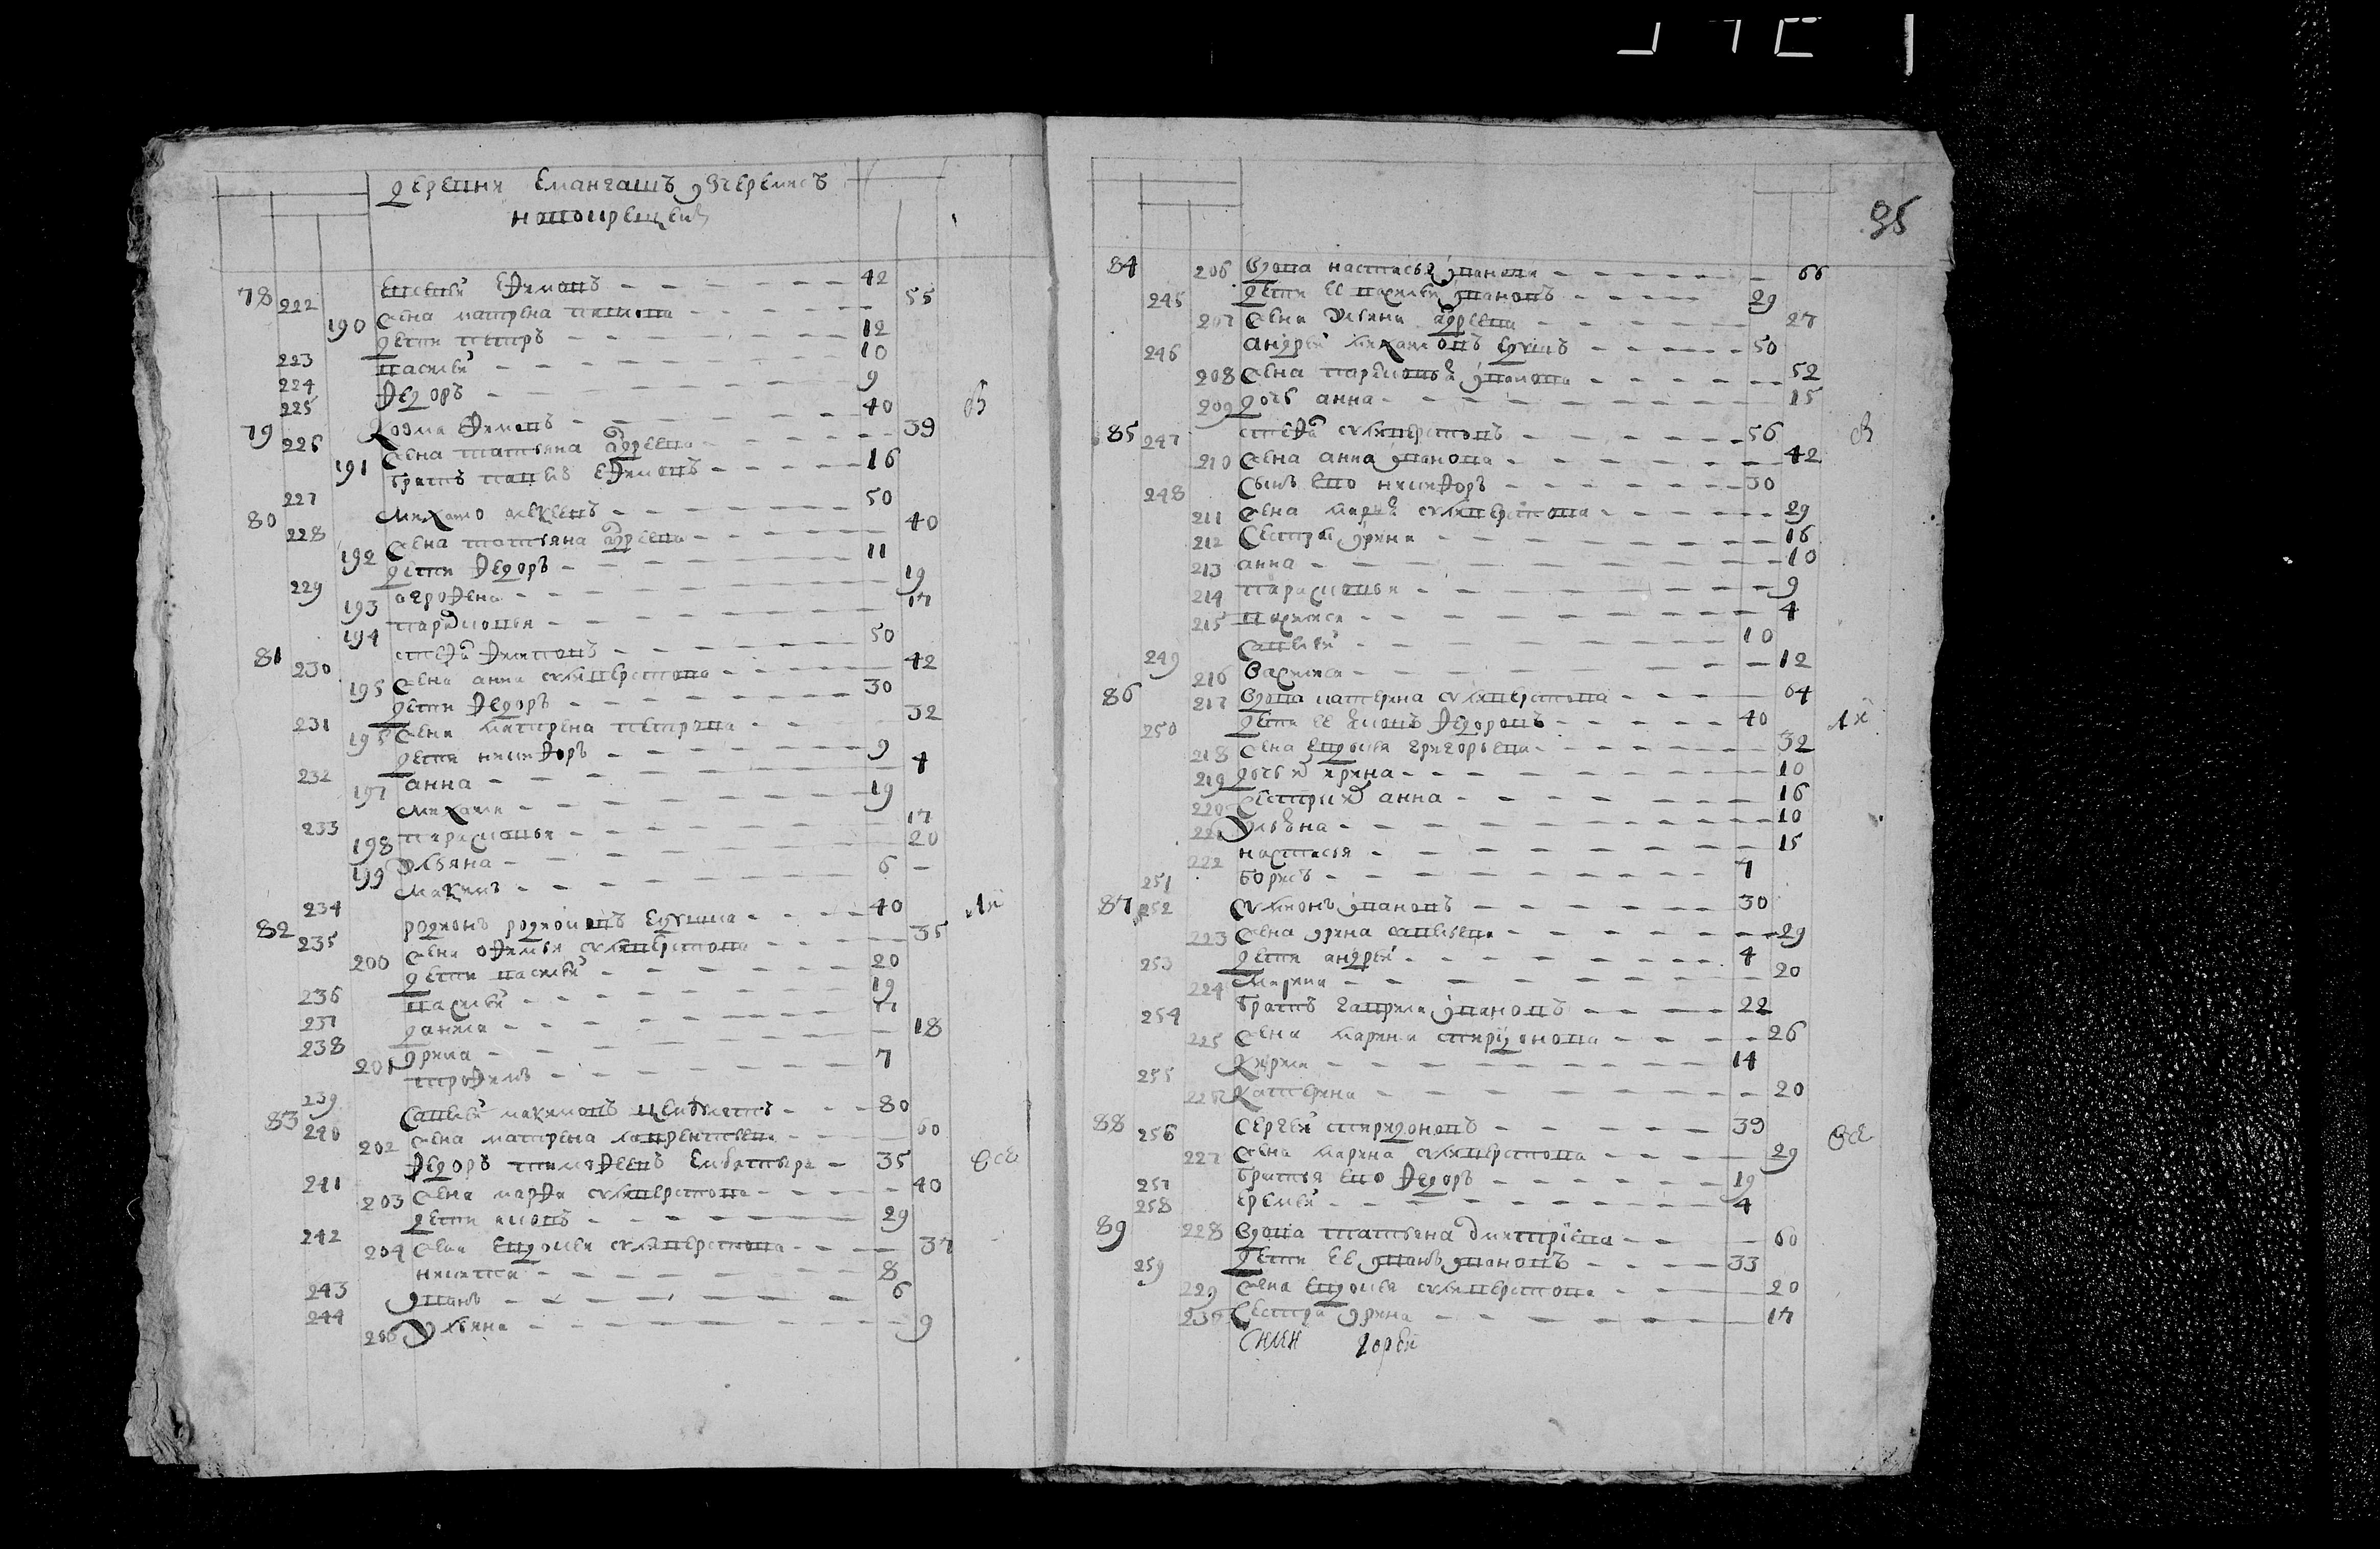 деревня Емангашъ у черемисъ
новокрещенъ
78 222 евсевей ефимовъ 42
190 жена матрена иванова 55
223 дети петръ 12
224 василей 10
225 федоръ 9
79 226 козма ефимовъ 40
191 жена татьяна андреева 39
227 братъ ефимовъ 16
80 228 михаило алексеевъ 50
192 жена татьяна андреева 40
229 дети федоръ 11
193 аграфена 19
194 парасковья 17
81 230 стефанъ филиповъ 50
195 жена анна селиверстова 42
231 дети федоръ 30
195 жена матрена петрова 32
232 дети никифоръ 9
197 анна 4
233 михаила 19
198 парасковья 17
199 ульяна 20
234 максимъ 6
82 235 родионъ родионовъ 40
200 жена офимья селиверстова 35
236 дети василей 20
237 василей 19
238 данила 17
201 орина 18
239 трофимъ 7
83 240 савелей максимовъ 80
202 жена матрена лаврентьева 60
241 федоръ тимофеевъ 35
203 жена марфа селиверстова 40
242 дети яковъ 29
204 жена евдокия селиверстова 37
243 никита 8
244 иванъ 6
205 ульяна 9
95
84 206 вдова настасья иванова 66
245 дети ее василей ивановъ 29
207 жена ульяна андреева 27
246 андрей михаиловъ 50
208 жена парасковья иванова 52
209 дочь анна 15
85 247 стефанъ селиверстовъ 56
210 жена анна иванова 42
248 сынъ ево никифоръ 30
211 жена марья селиверстова 29
212 сестры орина 16
213 анна 10
214 парасковья 9
215 4
249 савелей 10
216 василиса 12
86 217 вдова катерина селиверстова 64
250 дети ее яковъ федоровъ 40
218 жена евдокия григорьева 32
219 дочь ирина 10
220 сестры анна 16
221 ульяна 10
222 настасья 15
251 борисъ 7
87 252 семионъ ивановъ 30
223 жена орина савельева 29
253 дети андрей 4
224 марина 20
254 братъ гаврила ивановъ 22
225 жена марина спиридонова 26
255 кирила 14
226 катерина 20
88 256 сергей спиридоновъ 39
227 жена марина селиверстова 29
257 братья ево федоръ 19
258 еремей 4
89 228 вдова татьяна дмитриева 60
259 дети ее иванъ ивановъ 33
229 жена евдокия селиверстова 20
230 сестра орина 17